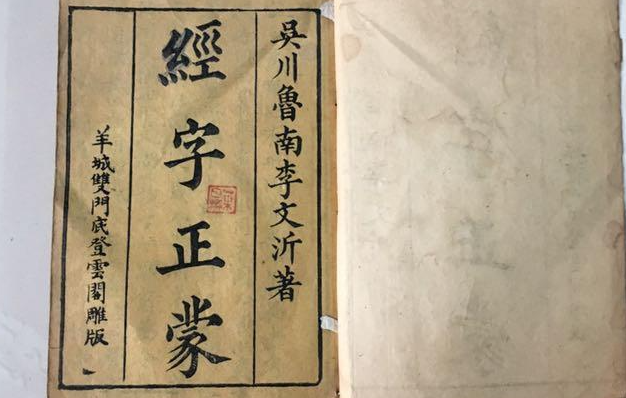 吳川魯南李文沂著
經字正蒙
羊城雙門底登雲閣雕版